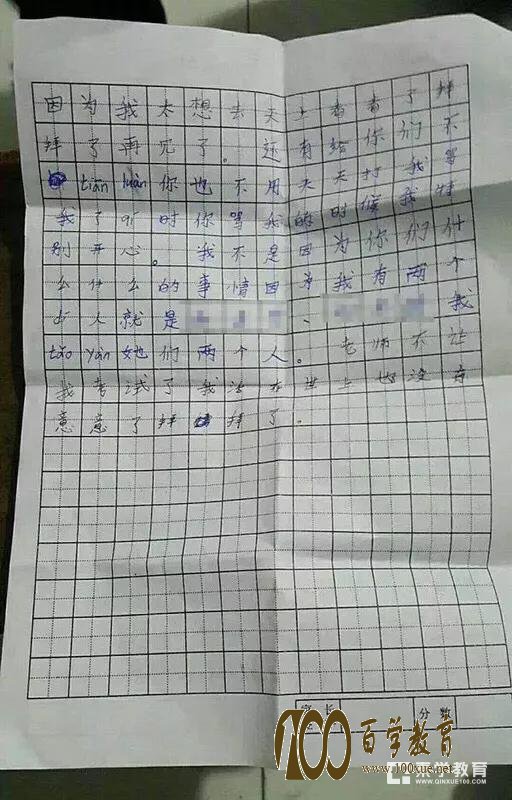 因为我太想去天上看看了拜
拜了再见了。还有给你们不
tiān luàn你也不用天天打我骂
我了 时你骂我的时候我特
别开心。我不是因为你们什
么什么的事情因为我有两个
人就是 、 我
tǎo yàn她们两个人。老师不让
我考试了我活在世上也没有
意意了拜拜了。
家长 分数
100百学教育
www.100xue.net
亲学教育
WWW.QINXUE100.COM